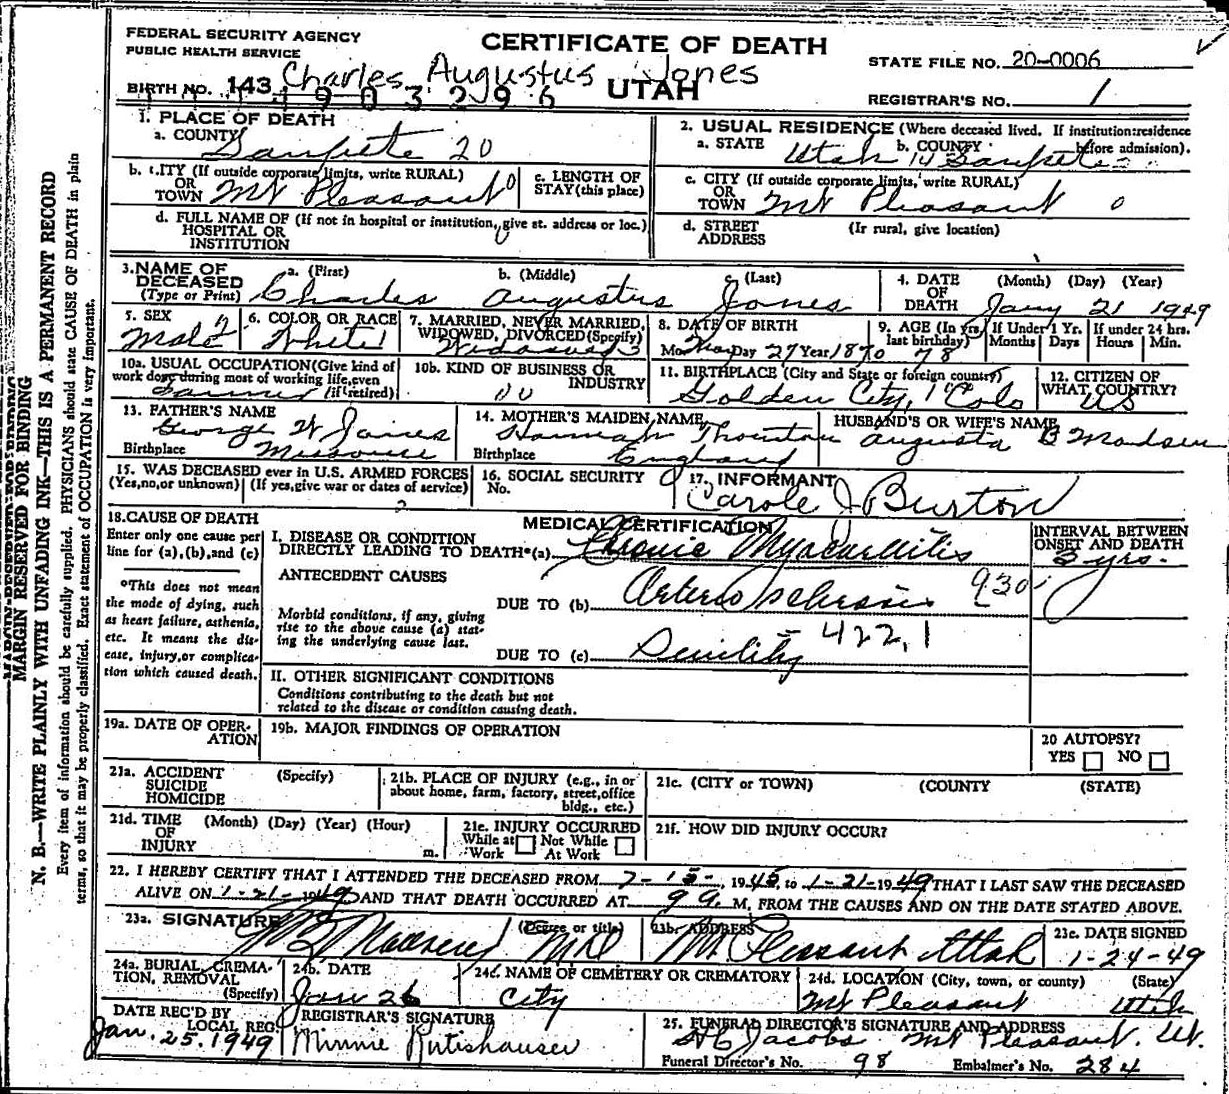 FEDERAL SECURITY AGENCY
PUBLIC HEALTH SERVICE
CERTIFICATE OF DEATH
UTAH
STATE FILE NO. 20-0006
BIRTH NO. 143 Charles Augustus Jones
REGISTRAR'S NO. 1
1. PLACE OF DEATH
a. COUNTY Sanpete 20
b. CITY (If outside corporate limits, write RURAL)
OR
TOWN Mt Pleasant 0
c. LENGTH OF
STAY (this place)
d. FULL NAME OF (If not in hospital or institution, give st. address or loc.)
HOSPITAL OR
INSTITUTION
2. USUAL RESIDENCE (Where deceased lived. If institution: residence
before admission).
a. STATE Utah 14 b. COUNTY Sanpete
c. CITY (If outside corporate limits, write RURAL)
OR
TOWN Mt Pleasant 0
d. STREET (If rural, give location)
ADDRESS
3. NAME OF
DECEASED
(Type or Print)
a. (First) b. (Middle) c. (Last)
Charles Augustus Jones
4. DATE (Month) (Day) (Year)
OF
DEATH Jany 21 1949
5. SEX
Male
6. COLOR OR RACE
White
7. MARRIED, NEVER MARRIED,
WIDOWED, DIVORCED (Specify)
Widowed 3
8. DATE OF BIRTH
Mo. Nov Day 27 Year 1870
9. AGE (In yrs.
last birthday)
78
If Under 1 Yr.
Months Days
If under 24 hrs.
Hours Min.
10a. USUAL OCCUPATION (Give kind of
work done during most of working life, even
(if retired)
Farmer
10b. KIND OF BUSINESS OR
INDUSTRY
11. BIRTHPLACE (City and State or foreign country)
Golden City, Colo
12. CITIZEN OF
WHAT COUNTRY?
US
13. FATHER'S NAME
George W Jones
Birthplace Missouri
14. MOTHER'S MAIDEN NAME
Hannah Thornton
Birthplace England
HUSBAND'S OR WIFE'S NAME
Augusta B Madsen
15. WAS DECEASED ever in U.S. ARMED FORCES
(Yes, no, or unknown) (If yes, give war or dates of service)
16. SOCIAL SECURITY
No.
17. INFORMANT
Carole J Burton
18. CAUSE OF DEATH
Enter only one cause per
line for (a), (b), and (c)
*This does not mean
the mode of dying, such
as heart failure, asthenia,
etc. It means the dis-
ease, injury, or complica-
tion which caused death.
MEDICAL CERTIFICATION
I. DISEASE OR CONDITION
DIRECTLY LEADING TO DEATH*(a) Chronic Myocarditis
ANTECEDENT CAUSES
Morbid conditions, if any, giving
rise to the above cause (a) stat-
ing the underlying cause last.
DUE TO (b) Arterio Sclerosis 930
422.1
DUE TO (c) Senility
INTERVAL BETWEEN
ONSET AND DEATH
3 yrs.
II. OTHER SIGNIFICANT CONDITIONS
Conditions contributing to the death but not
related to the disease or condition causing death.
19a. DATE OF OPER-
ATION
19b. MAJOR FINDINGS OF OPERATION
20 AUTOPSY?
YES NO
21a. ACCIDENT (Specify)
SUICIDE
HOMICIDE
21b. PLACE OF INJURY (e.g., in or
about home, farm, factory, street, office
bldg., etc.)
21c. (CITY or TOWN) (COUNTY (STATE)
21d. TIME (Month) (Day) (Year) (Hour)
OF
INJURY m.
21e. INJURY OCCURRED
While at Not While
Work At Work
21f. HOW DID INJURY OCCUR?
22. I HEREBY CERTIFY THAT I ATTENDED THE DECEASED FROM 7-15-, 1945, to 1-21-1949 THAT I LAST SAW THE DECEASED
ALIVE ON 1-21-1949 AND THAT DEATH OCCURRED AT 9 A. M, FROM THE CAUSES AND ON THE DATE STATED ABOVE.
23a. SIGNATURE (Degree or title)
Madsen MD
23b. ADDRESS
Mt Pleasant Utah
23c. DATE SIGNED
1-24-49
24a. BURIAL, CREMA-
TION, REMOVAL
(Specify)
24b. DATE
Jan 26
24c. NAME OF CEMETERY OR CREMATORY
City
24d. LOCATION (City, town, or county) (State)
Mt Pleasant Utah
DATE REC'D BY
LOCAL REG.
Jan. 25. 1949
REGISTRAR'S SIGNATURE
Minnie Rutishauser
25. FUNERAL DIRECTOR'S SIGNATURE AND ADDRESS
Jacobs Mt Pleasant. Ut.
Funeral Director's No. 98 Embalmer's No. 284
MARGIN RESERVED FOR BINDING
N. B.—WRITE PLAINLY WITH UNFADING INK—THIS IS A PERMANENT RECORD
Every item of information should be carefully supplied. PHYSICIANS should state CAUSE OF DEATH in plain
terms, so that it may be properly classified. Exact statement of OCCUPATION is very important.